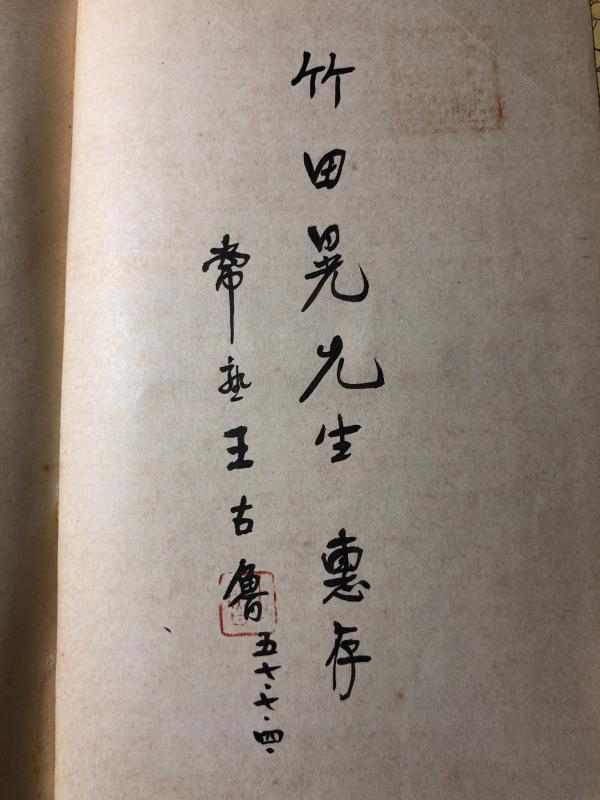 竹田晃先生 惠存
常熟王古魯
五七.七.四.